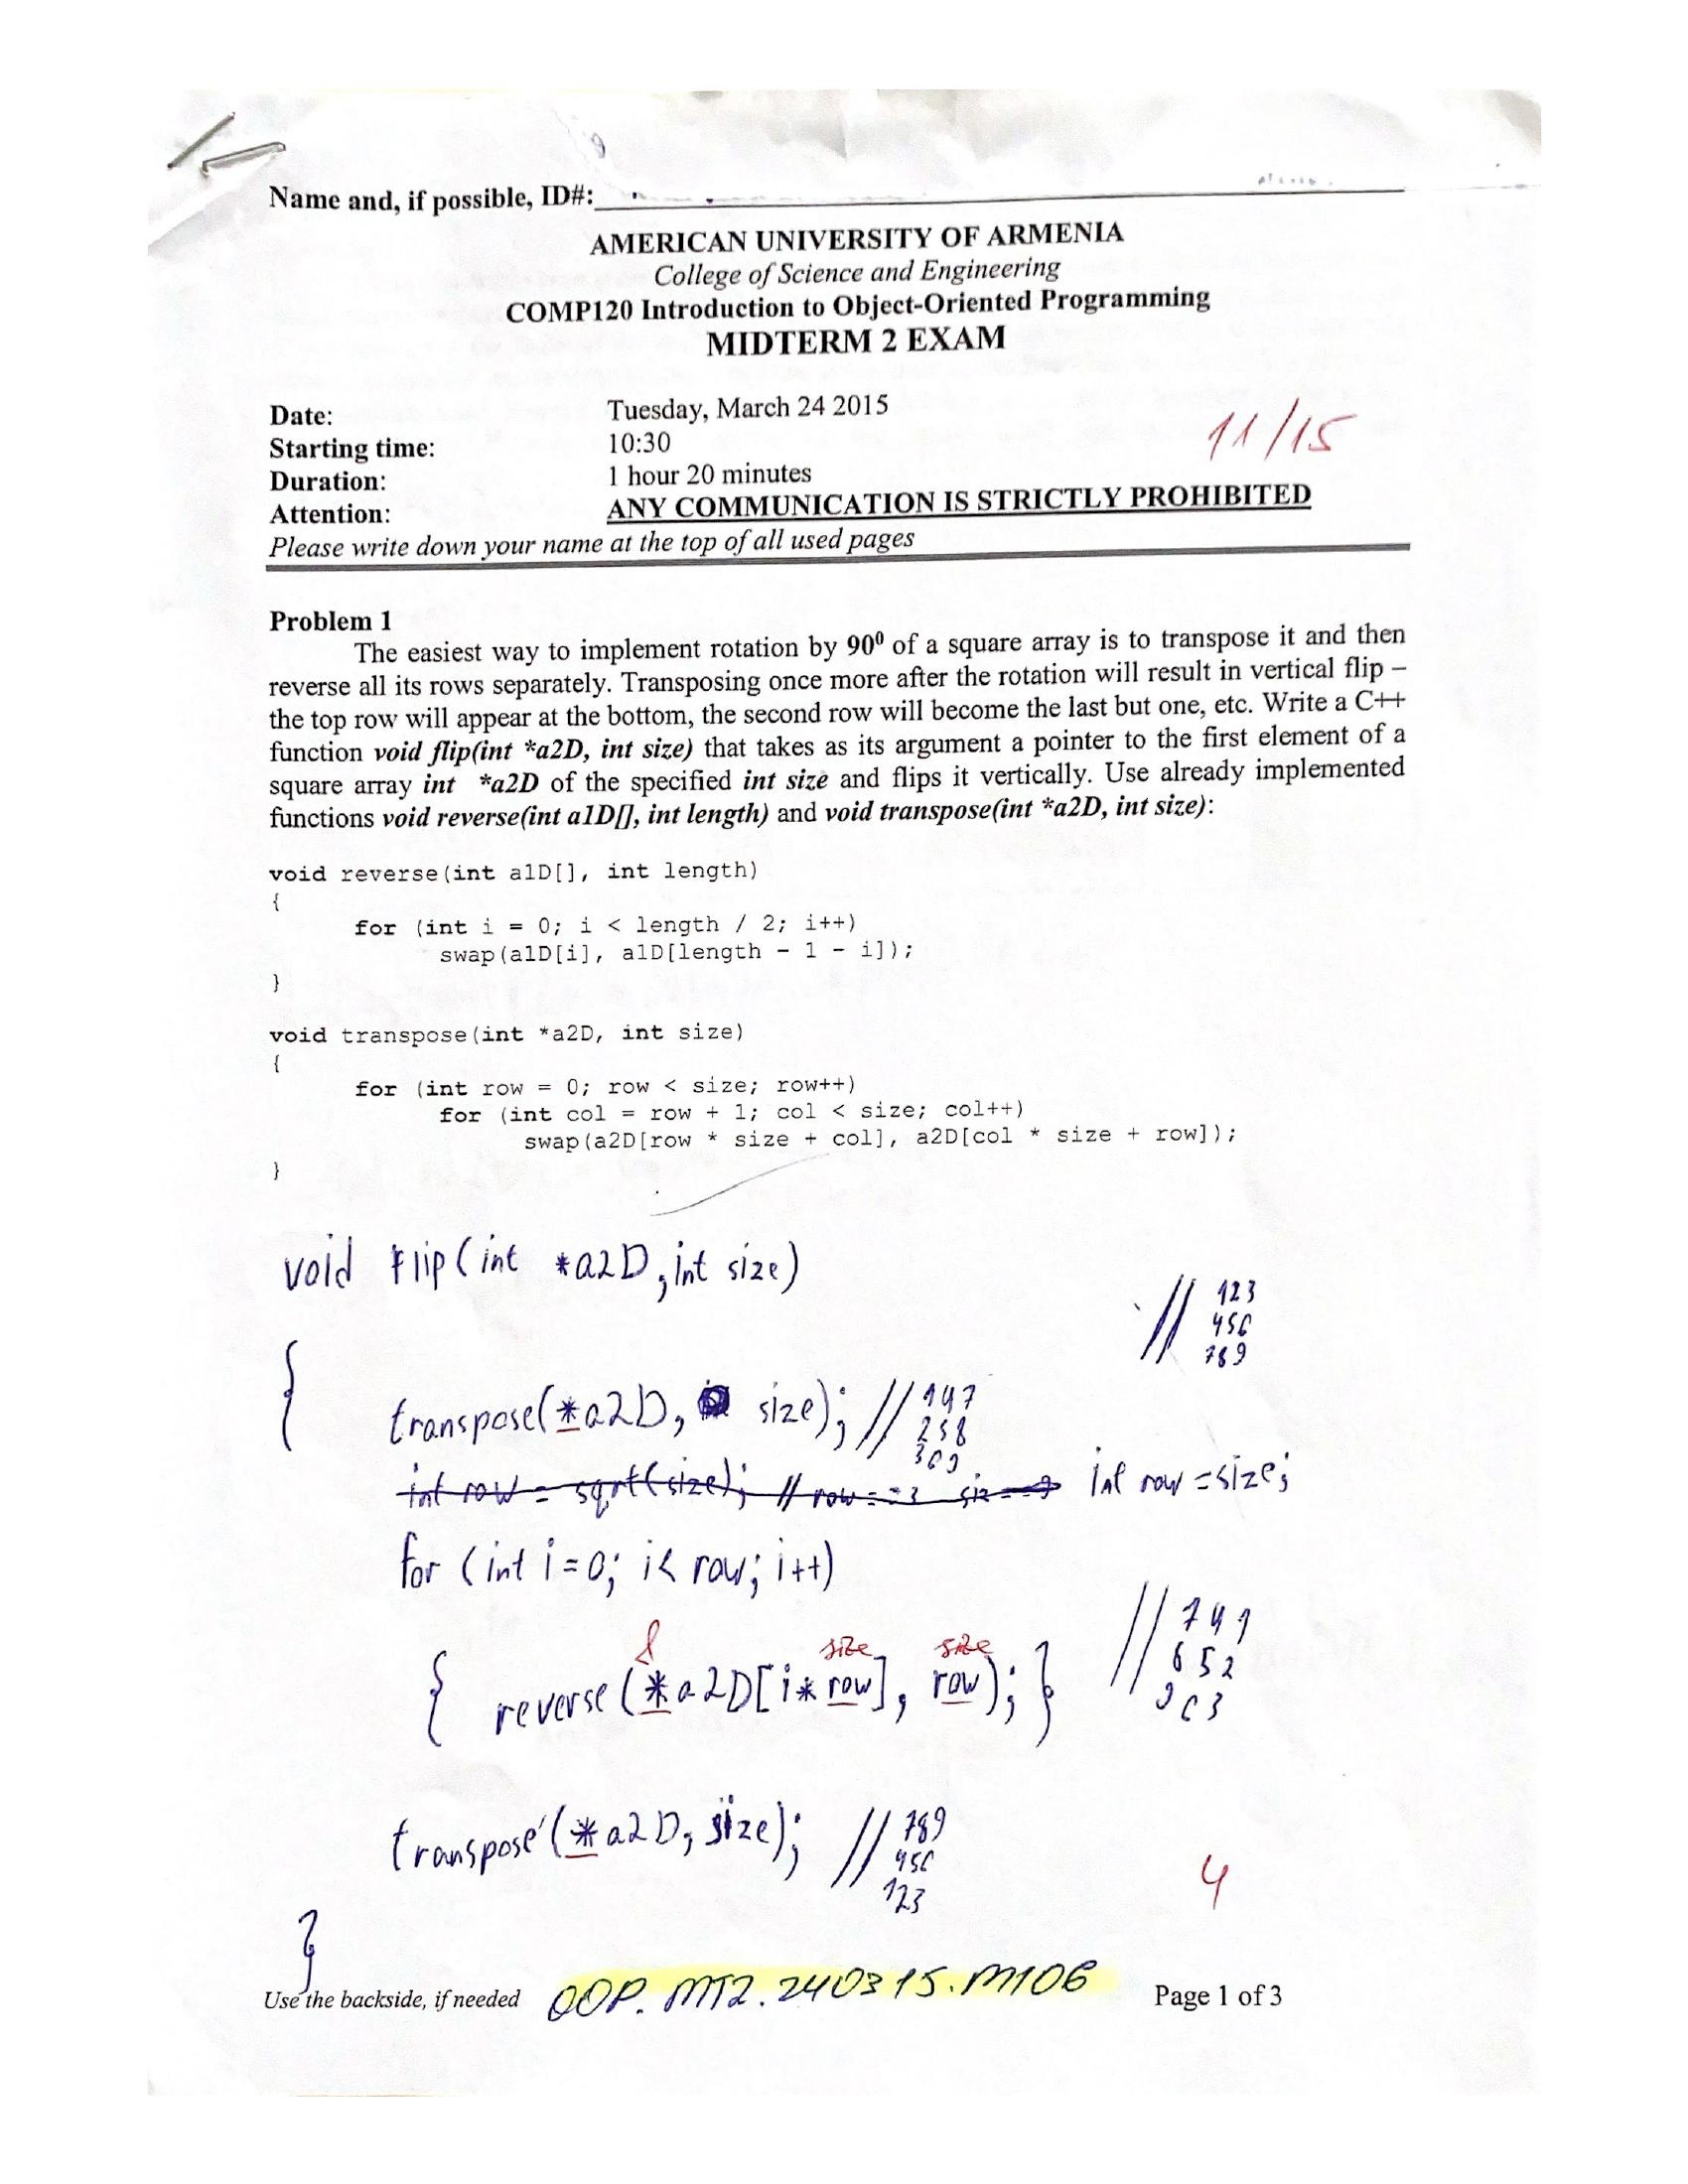 Name and, if possible, ID#:
AMERICAN UNIVERSITY OF ARMENIA
College of Science and Engineering
COMP120 Introduction to Object-Oriented Programming
MIDTERM 2 EXAM
Date: Tuesday, March 24 2015
11/15
Starting time: 10:30
Duration: 1 hour 20 minutes
Attention: ANY COMMUNICATION IS STRICTLY PROHIBITED
Please write down your name at the top of all used pages
Problem 1
The easiest way to implement rotation by 90⁰ of a square array is to transpose it and then
reverse all its rows separately. Transposing once more after the rotation will result in vertical flip –
the top row will appear at the bottom, the second row will become the last but one, etc. Write a C++
function void flip(int *a2D, int size) that takes as its argument a pointer to the first element of a
square array int *a2D of the specified int size and flips it vertically. Use already implemented
functions void reverse(int a1D[], int length) and void transpose(int *a2D, int size):
void reverse(int a1D[], int length)
{
for (int i = 0; i < length / 2; i++)
swap(a1D[i], a1D[length - 1 - i]);
}
void transpose(int *a2D, int size)
{
for (int row = 0; row < size; row++)
for (int col = row + 1; col < size; col++)
swap(a2D[row * size + col], a2D[col * size + row]);
}
void flip(int *a2D, int size)
// 123
456
789
{
transpose(*a2D, size); // 147
258
369
int row = sqrt(size); // row==3 siz==9 int row = size;
for (int i=0; i< row; i++)
& size size
{ reverse(*a2D[i* row], row); }
// 741
852
963
transpose(*a2D, size); // 789
456
123
4
}
Use the backside, if needed OOP. MT2. 240315. M106 Page 1 of 3